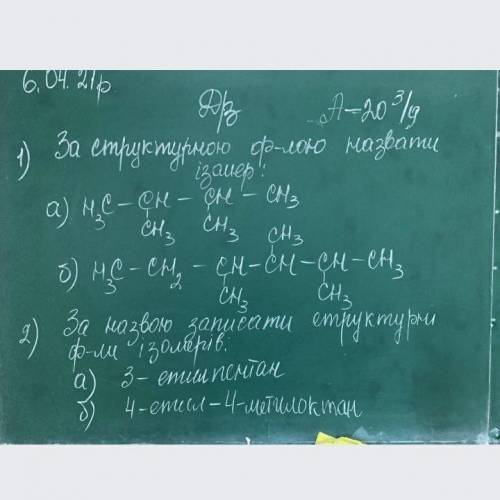 6.04.21р
Дз А-20 з/д
1) За структурною ф-лою назвати
ізомер:
а) H3C – CH – CH – CH3
CH3 CH3
CH3
б) H3C – CH2 – CH – CH – CH – CH3
CH3 CH3
2) За назвою записати структурні
ф-ли ізомерів:
а) 3-етилпентан
б) 4-етил-4-метилоктан